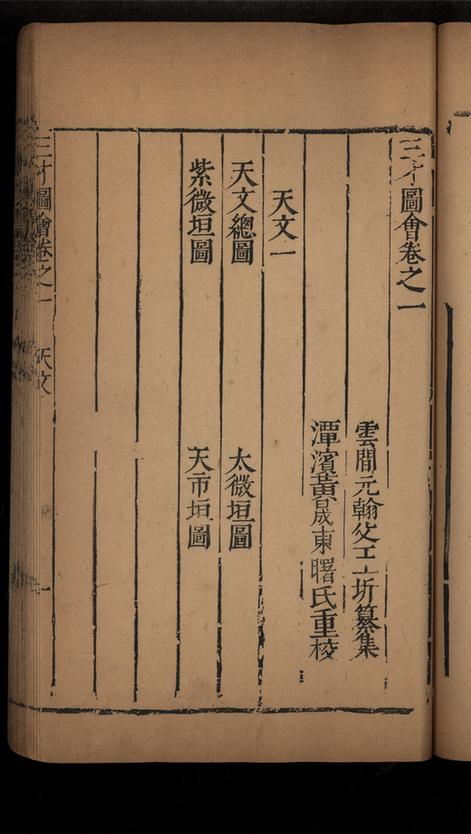 三才圖會卷之一
雲間元翰父王圻纂集
潭濱黃晟東曙氏重校
天文一
天文總圖 太微垣圖
紫微垣圖 天市垣圖
三才圖會卷之一 天文 一